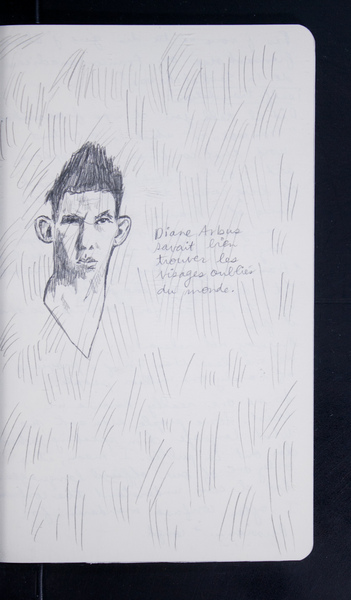 Diane Arbus
savait bien
trouver les
visages oubliés
du monde.